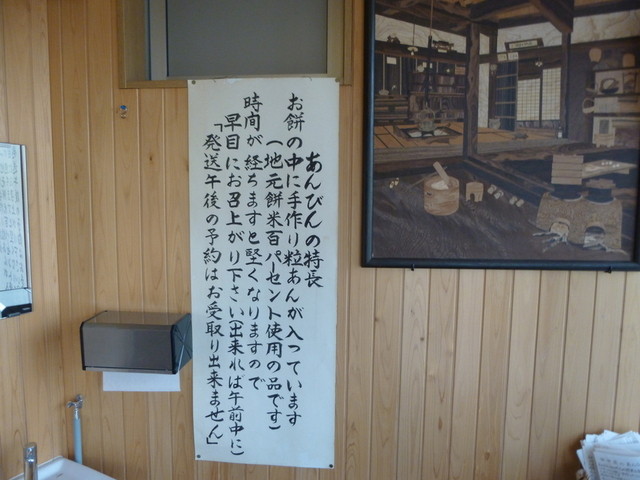 あんびんの特長
お餅の中に手作り粒あんが入っています
(地元餅米百パーセント使用の品です)
時間が経ちますと堅くなりますので
早目にお召上がり下さい(出来れば午前中に)
「発送午後の予約はお受取り出来ません」